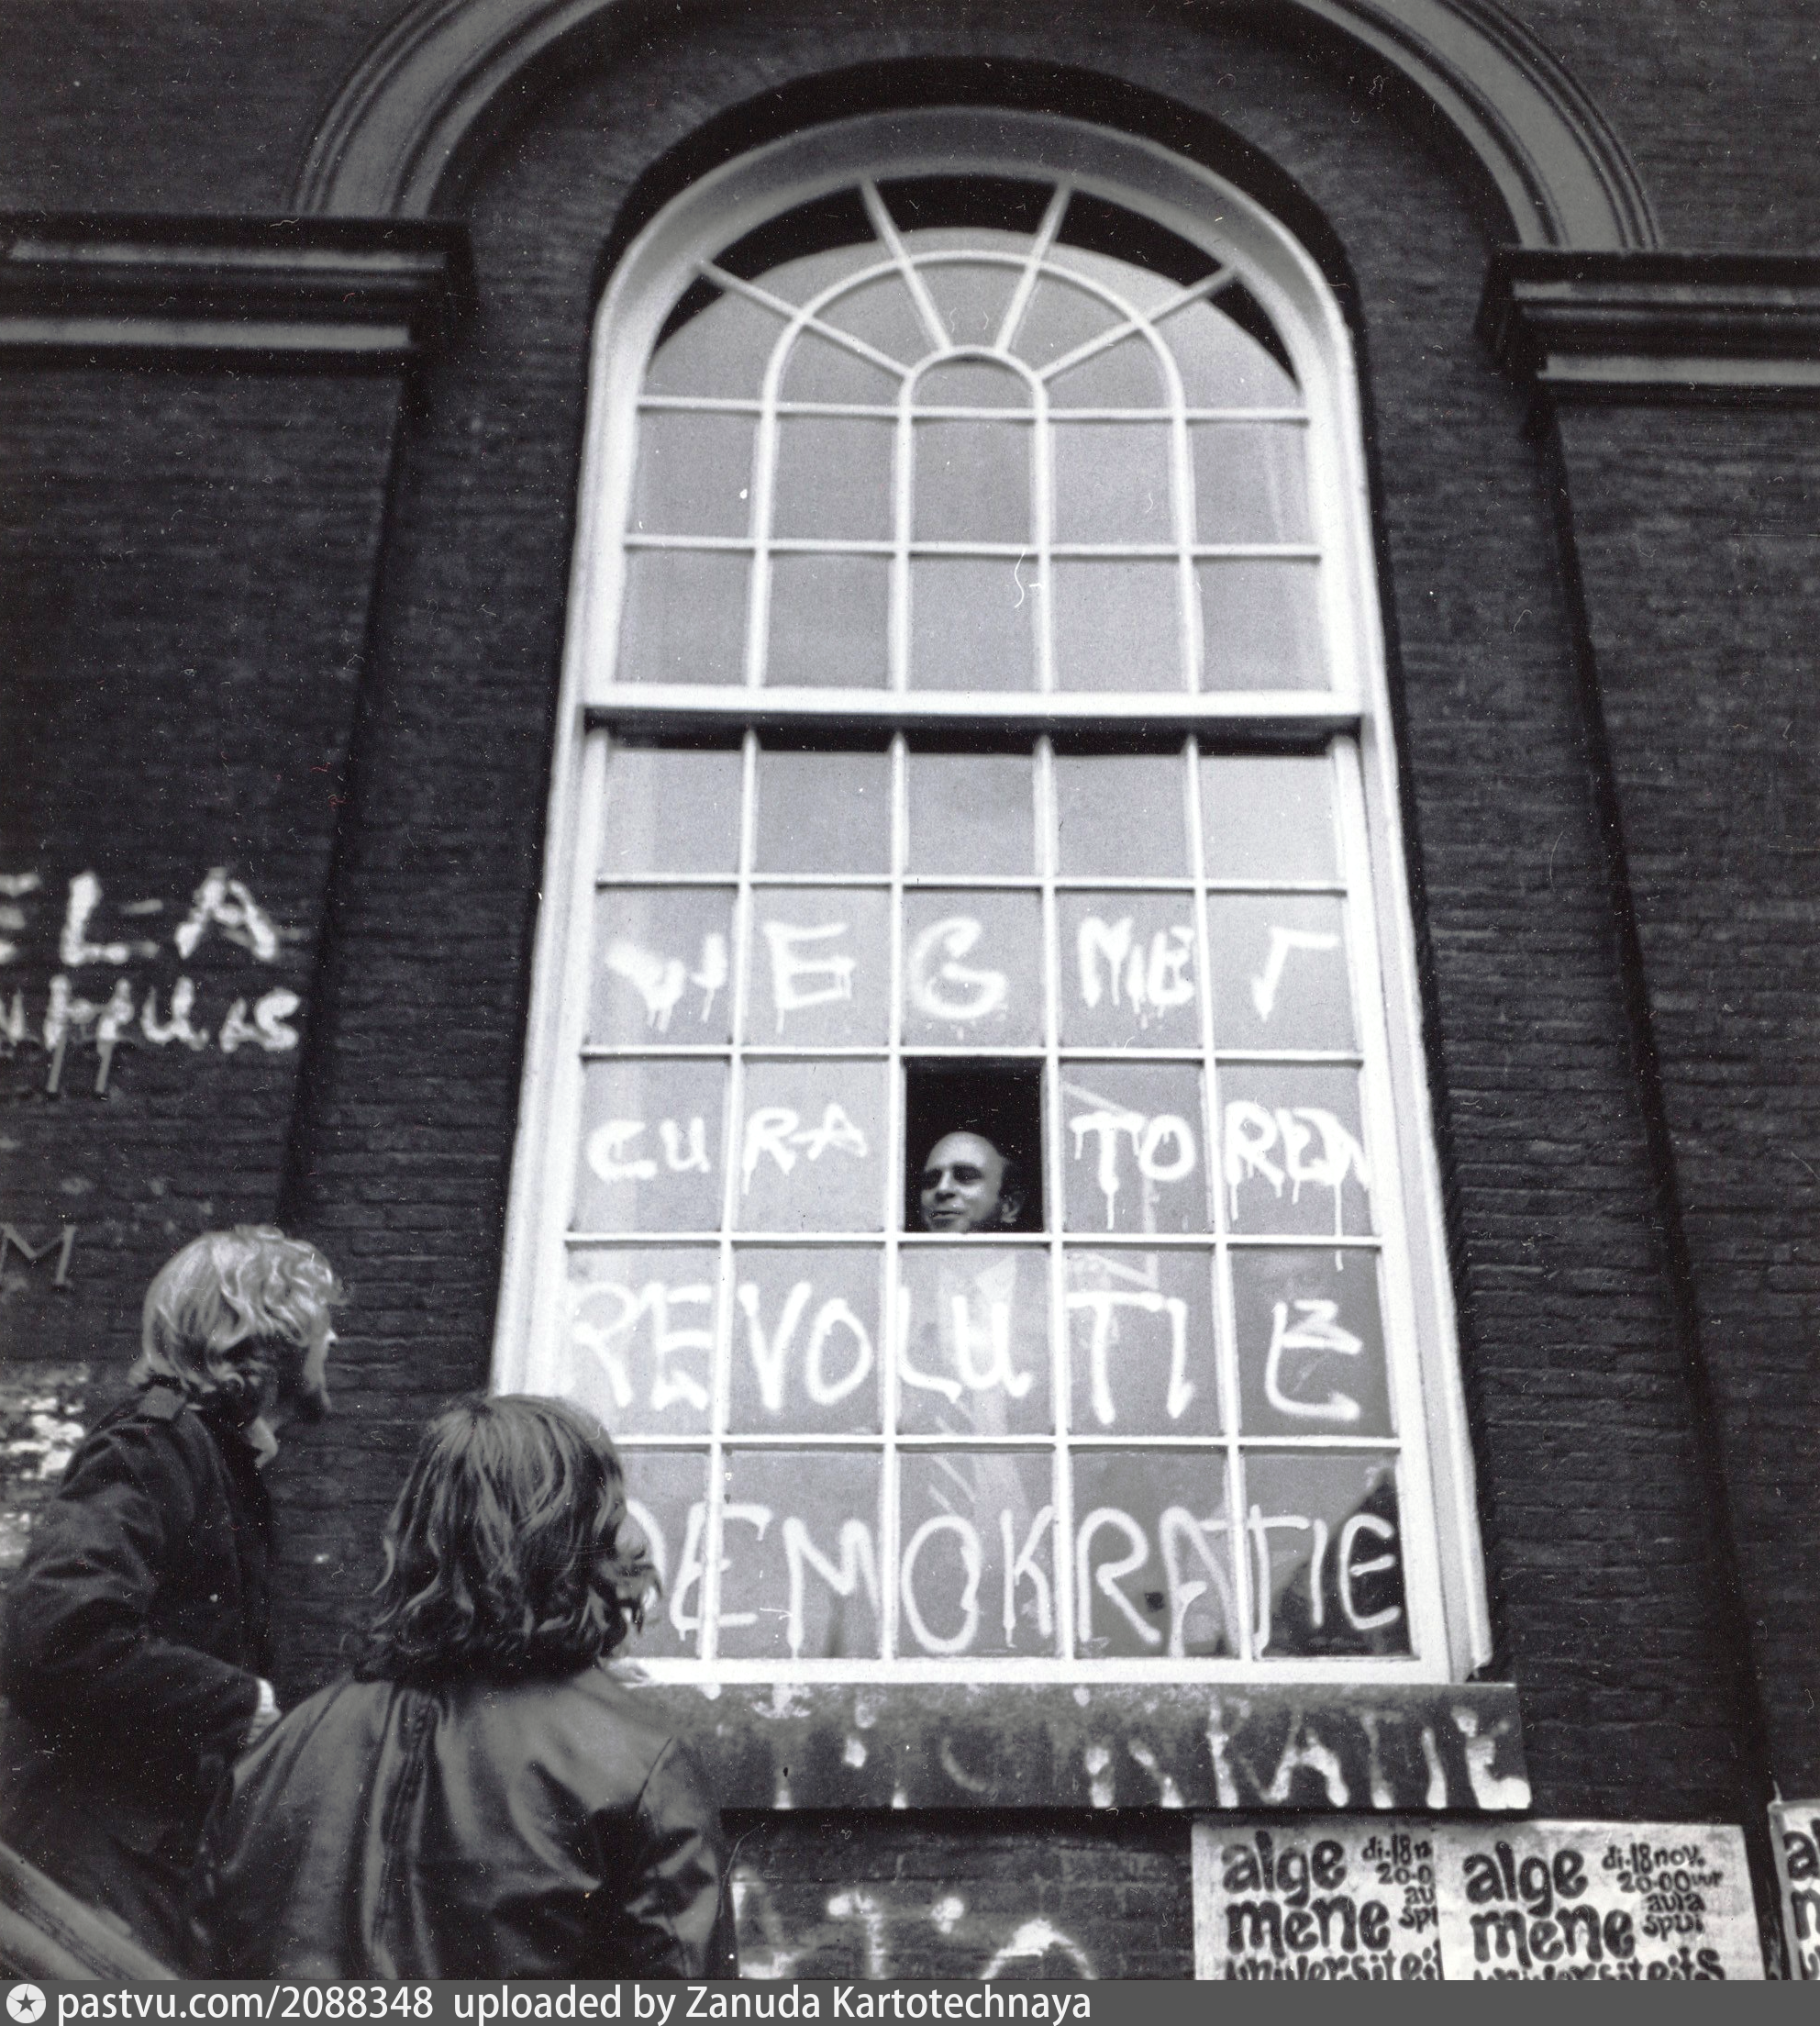 WEG MET
CURATOREN
REVOLUTIE
DEMOKRATIE
KRATIE
alge
mene
di.18n
20-0
au
spu
alge
mene
universiteits
di.18 nov.
20-00 uur
aula
spui
pastvu.com/2088348 uploaded by Zanuda Kartotechnaya